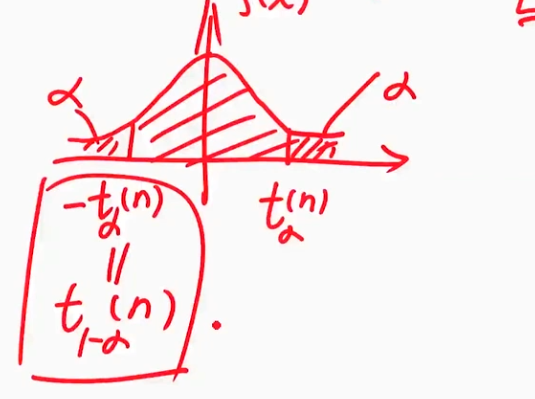 f(x)
α α
-t_α(n) t_α(n)
||
t_{1-α}(n)